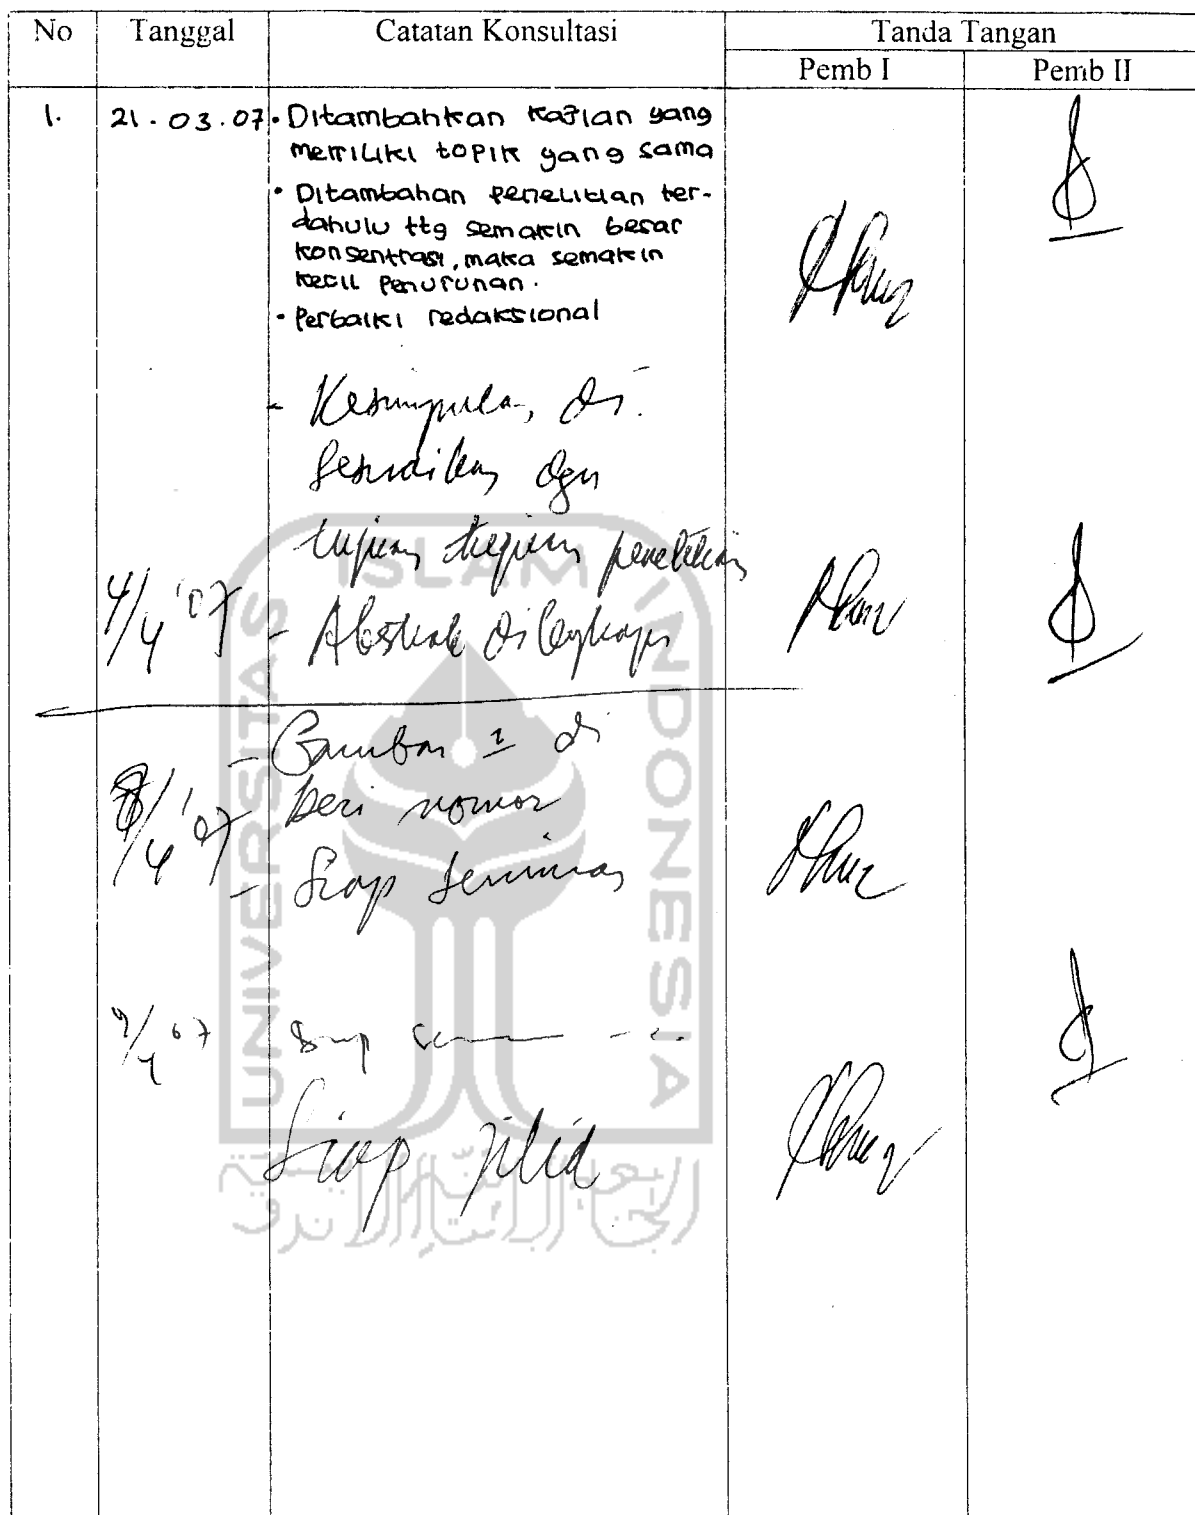 No Tanggal Catatan Konsultasi Tanda Tangan
Pemb I Pemb II
1. 21.03.07 • Ditambahkan kajian yang
memiliki topik yang sama
• Ditambahan penelitian ter-
dahulu ttg semakin besar
konsentrasi, maka semakin
kecil penurunan.
• Perbaiki redaksional
- Kesimpulan di
sesuaikan dgn
tujuan penelitian
4/4 '07 - Abstrak dilengkapi
- Gambar 2 di
8/4 '07 beri nomor
- Siap seminar
9/4 07
Siap jilid
UNIVERSITAS ISLAM INDONESIA